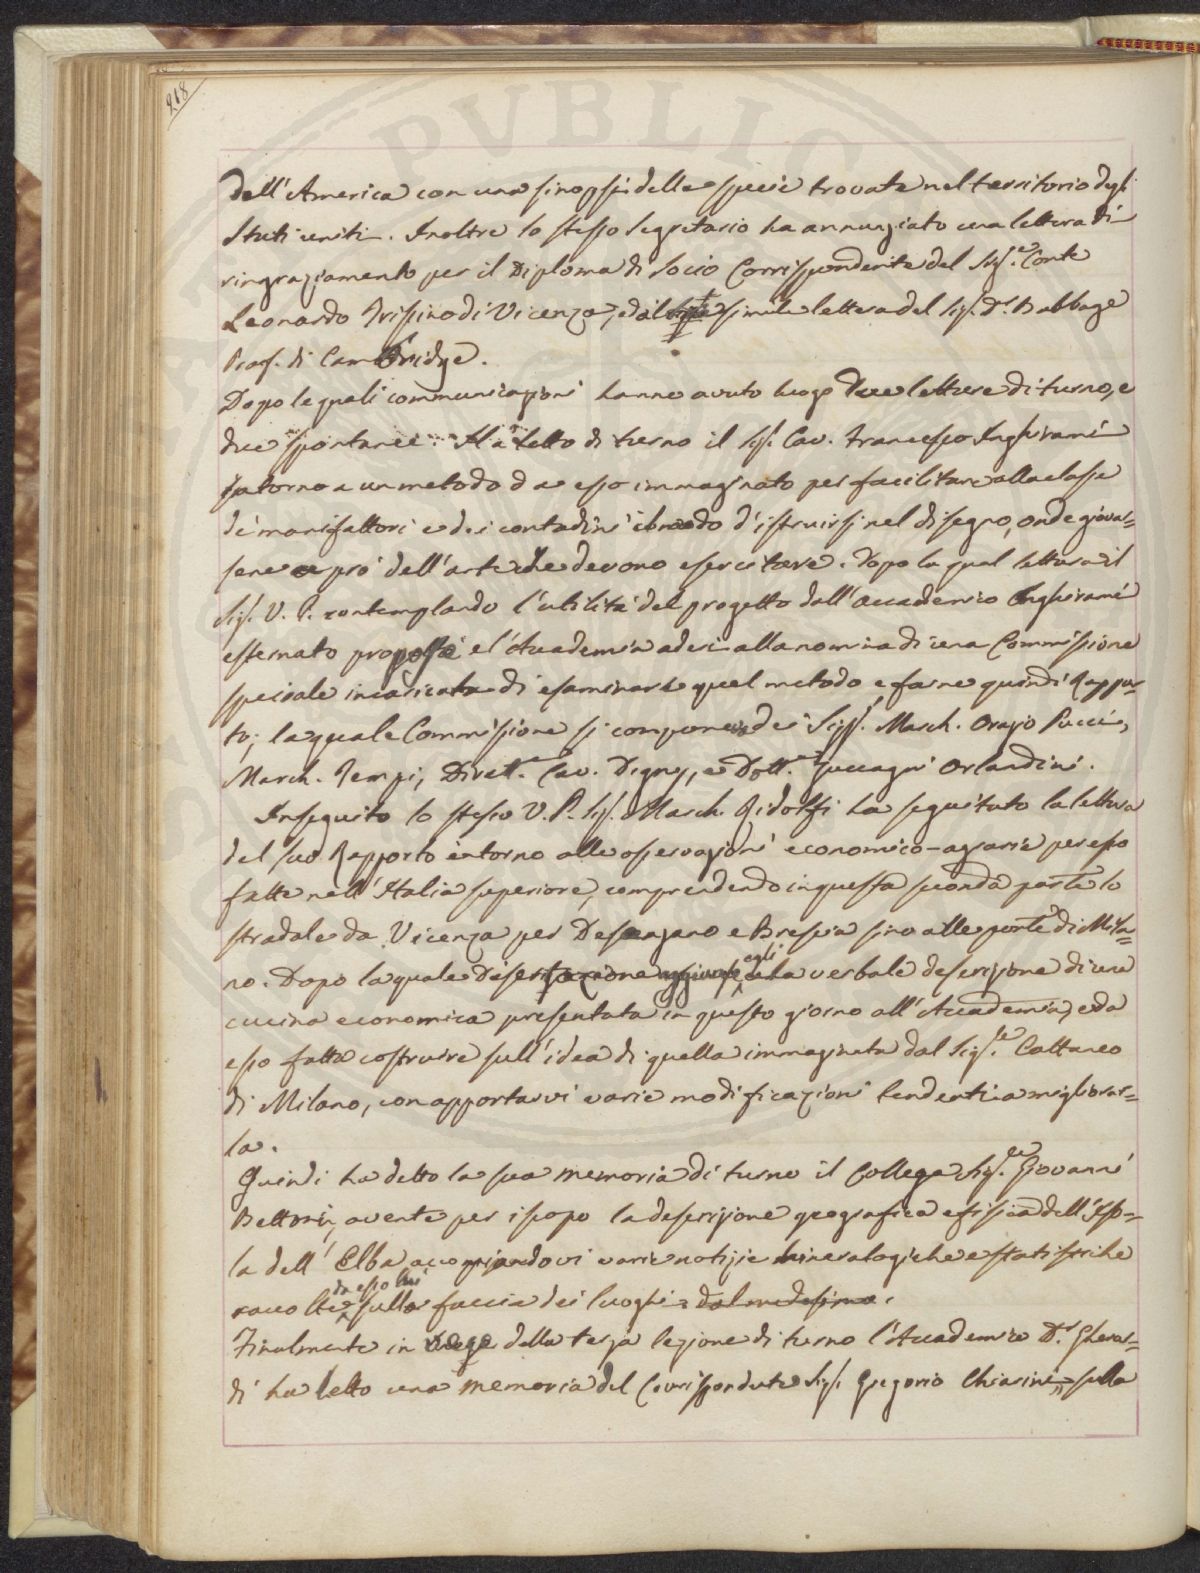 218
dell'America con una sinopsi delle specie trovate nel territorio degli
Stati uniti. Inoltre lo stesso Segretario ha annunziato una lettera di
ringraziamento per il Diploma di Socio Corrispondente del Sig.e Conte
Leonardo Trissino di Vicenza, ed altra simile lettera del Sig. Dr. Babbage
Prof. di Cambridge.
Dopo le quali communicazioni hanno avuto luogo due letture di turno, e
due spontanee. Ha letto di turno il Sig. Cav. Francesco Inghirami
intorno a un metodo da esso immaginato per facilitare alla classe
de' manifattori e dei contadini il modo d'istruirsi nel disegno, onde giovar=
sene a pro' dell'arte che devono esercitare. Dopo la qual lettura il
Sig. V. P. contemplando l'utilità del progetto dall'accademico Inghirami
esternato propose e l'Accademia aderì alla nomina di una Commissione
speciale incaricata di esaminare quel metodo e farne quindi Rappor=
to; la quale Commissione si compone dei Sigg. March. Orazio Pucci,
March. Tempi, Dirett.e Cav. Digny, e Dott.e Zuccagni Orlandini.
In seguito lo stesso V. P. Sig. March. Ridolfi ha seguitato la lettura
del suo Rapporto intorno alle osservazioni economico-agrarie per esso
fatte nell'Italia superiore, comprendendo in questa seconda parte lo
stradale da Vicenza per Desenzano e Brescia sino alle porte di Mila=
no. Dopo la quale Dissertazione aggiunse egli la verbale descrizione di una
cucina economica presentata in questo giorno all'Accademia, e da
esso fatta costruire sull'idea di quella immaginata dal Sig.re Cattaneo
di Milano, con apportarvi varie modificazioni tendenti a miglior ar=
la.
Quindi ha detto la sua memoria di turno il Collega Sig.re Giovanni
Bettoni, avente per iscopo la descrizione geografica e fisica dell'Iso=
la dell'Elba accoppiandovi varie notizie mineralogiche e statistiche
raccolte da esso lui sulla faccia dei luoghi dal medesimo.
Finalmente in vece della terza lezione di turno l'Accademico Dr. Gherar=
di ha letto una memoria del Corrispondente Sig. Gregorio Chiarini sulla